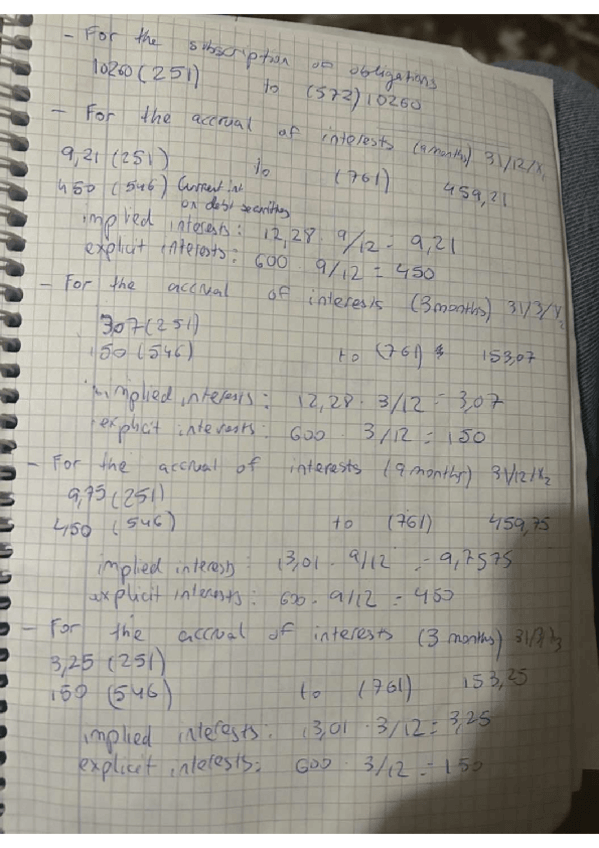 - For the subscription of obligations
10260 (251) to (572) 10260
- For the accrual of interests (9 months) 31/12/X1
9,21 (251) to (761) 459,21
450 (546) Current int on debt securities
implied interests: 12,28 · 9/12 = 9,21
explicit interests: 600 · 9/12 = 450
- For the accrual of interests (3 months) 31/3/X2
307 (251)
150 (546) to (761) 153,07
implied interests: 12,28 · 3/12 = 3,07
explicit interests: 600 · 3/12 = 150
- For the accrual of interests (9 months) 31/12/X2
9,75 (251)
450 (546) to (761) 459,75
implied interests: 13,01 · 9/12 = 9,7575
explicit interests: 600 · 9/12 = 450
- For the accrual of interests (3 months) 31/3/X3
3,25 (251)
150 (546) to (761) 153,25
implied interests: 13,01 · 3/12 = 3,25
explicit interests: 600 · 3/12 = 150